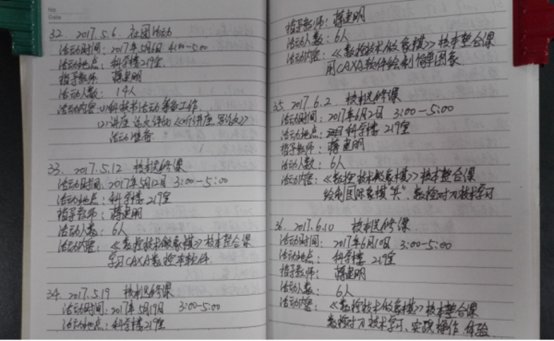 32. 2017.5.6. 社团活动
活动时间: 2017年5月6日 4:00-5:00
活动地点: 科学楼219室
指导教师: 蒋建明
活动人数: 14人
活动内容: (1)科技术活动筹备工作
活动准备
33. 2017.5.12 校本选修课
活动时间: 2017年5月12日 3:00-5:00
活动地点: 科学楼219室
指导教师: 蒋建明
活动人数: 6人
活动内容: 《数控技术做象棋》校本整合课
学习CAXA数控车软件
34. 2017.5.19 校本选修课
活动时间: 2017年5月19日 3:00-5:00
活动地点: 科学楼219室
指导教师: 蒋建明
活动人数: 6人
活动内容: 《数控技术做象棋》校本整合课
用CAXA软件绘制简单图形
35. 2017.6.2. 校本选修课
活动时间: 2017年6月2日 3:00-5:00
活动地点: 科学楼219室
指导教师: 蒋建明
活动人数: 6人
活动内容: 《数控技术做象棋》校本整合课
绘制国际象棋“兵” 数控对刀技术学习
36. 2017.6.10 校本选修课
活动时间: 2017年6月10日 3:00-5:00
活动地点: 科学楼219室
指导教师: 蒋建明
活动人数: 6人
活动内容: 《数控技术做象棋》校本整合课
数控对刀技术学习、实践操作、体验